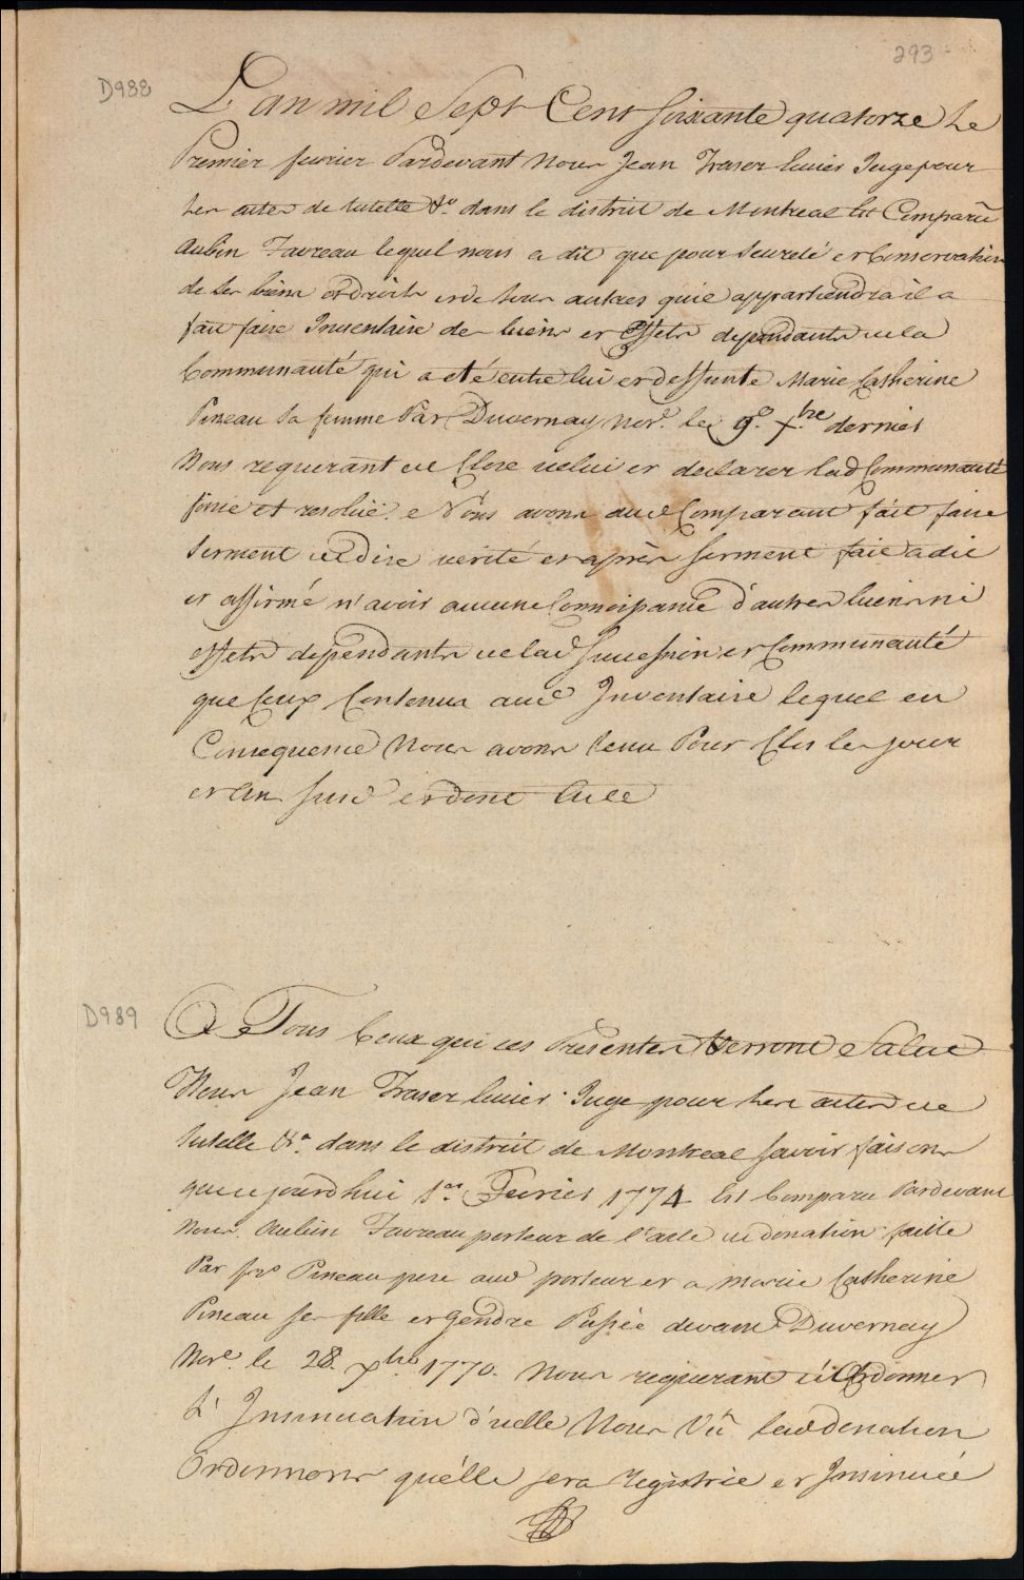 293
D988
L'an mil Sept Cent soixante quatorze Le
Premier fevrier Pardevant Nous Jean Fraser Ecuier Juge pour
Les actes de tutelle &a. dans le district de Montreal Est Comparû
Aubin Favreau lequel nous a dit que pour seureté et Conservation
de ses biens et droits et de tous autres quil appartiendra il a
fait faire Inventaire des biens et Effets dependants de la
Communauté qui a eté entre lui et deffunte Marie Catherine
Pineau sa femme Par Duvernay Nore. le 9e. xbre dernier
Nous requerant de Clore celui et declarer lad Communauté
finie et resoluë. Nous avons aud Comparant fait faire
Serment de dire verité et après serment fait a dit
et affirmé n'avoir aucune Connoissance d'autres biens ni
effets dependants de lad Succession et Communauté
que Ceux Contenus aud Inventaire lequel en
Consequence Nous avons tenu Pour Clos les jour
et an susd et dont acte
D989
A Tous Ceux qui ces Presentes Verront Salut
Nous Jean Fraser Ecuier Juge pour les actes de
tutelle &a. dans le district de Montreal savoir faisons
que cejourd'hui 1er. Fevrier 1774 Est Comparu Pardevant
Nous Aubin Favreau porteur de l'acte de donation faitte
Par frs Pineau pere aud porteur et a Marie Catherine
Pineau ses fille et Gendre Passée devant Duvernay
Nore. le 28. xbre 1770. Nous requerant d'Ordonner
L'Insinuation d'icelle Nous Vû lad donation
Ordonnons qu'elle sera Registrée et Insinuée